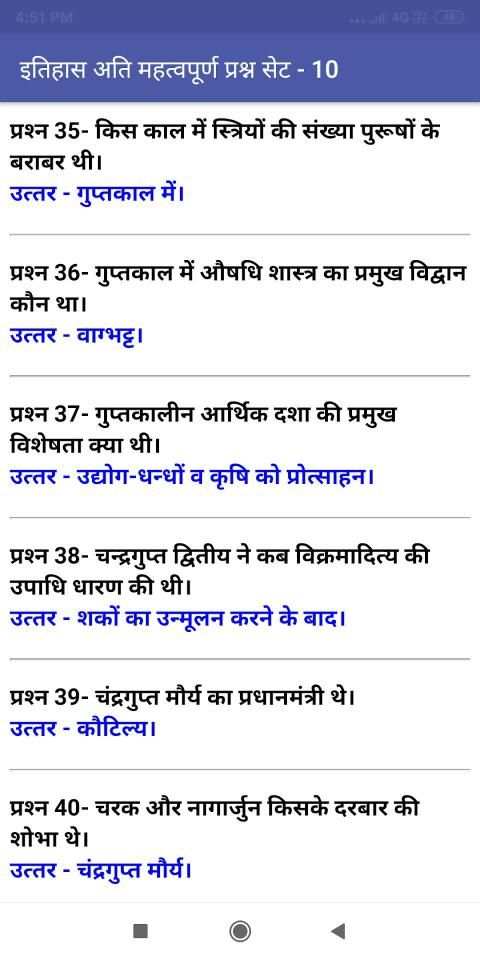 4:51 PM
4G
इतिहास अति महत्वपूर्ण प्रश्न सेट - 10
प्रश्न 35- किस काल में स्त्रियों की संख्या पुरूषों के
बराबर थी।
उत्तर - गुप्तकाल में।
प्रश्न 36- गुप्तकाल में औषधि शास्त्र का प्रमुख विद्वान
कौन था।
उत्तर - वाग्भट्ट।
प्रश्न 37- गुप्तकालीन आर्थिक दशा की प्रमुख
विशेषता क्या थी।
उत्तर - उद्योग-धन्धों व कृषि को प्रोत्साहन।
प्रश्न 38- चन्द्रगुप्त द्वितीय ने कब विक्रमादित्य की
उपाधि धारण की थी।
उत्तर - शकों का उन्मूलन करने के बाद।
प्रश्न 39- चंद्रगुप्त मौर्य का प्रधानमंत्री थे।
उत्तर - कौटिल्य।
प्रश्न 40- चरक और नागार्जुन किसके दरबार की
शोभा थे।
उत्तर - चंद्रगुप्त मौर्य।